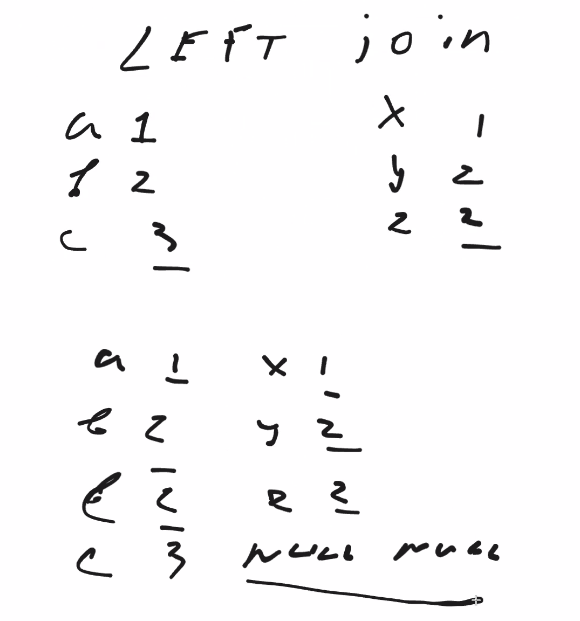 LEFT join
a 1 x 1
b 2 y 2
c 3 z 2
a 1 x 1
b 2 y 2
b 2 z 2
c 3 NULL NULL